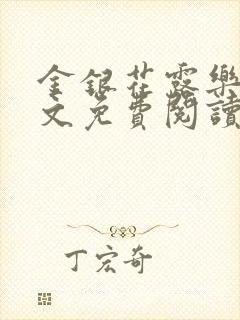 金銀花露樂
文免費閱讀
丁宏奇